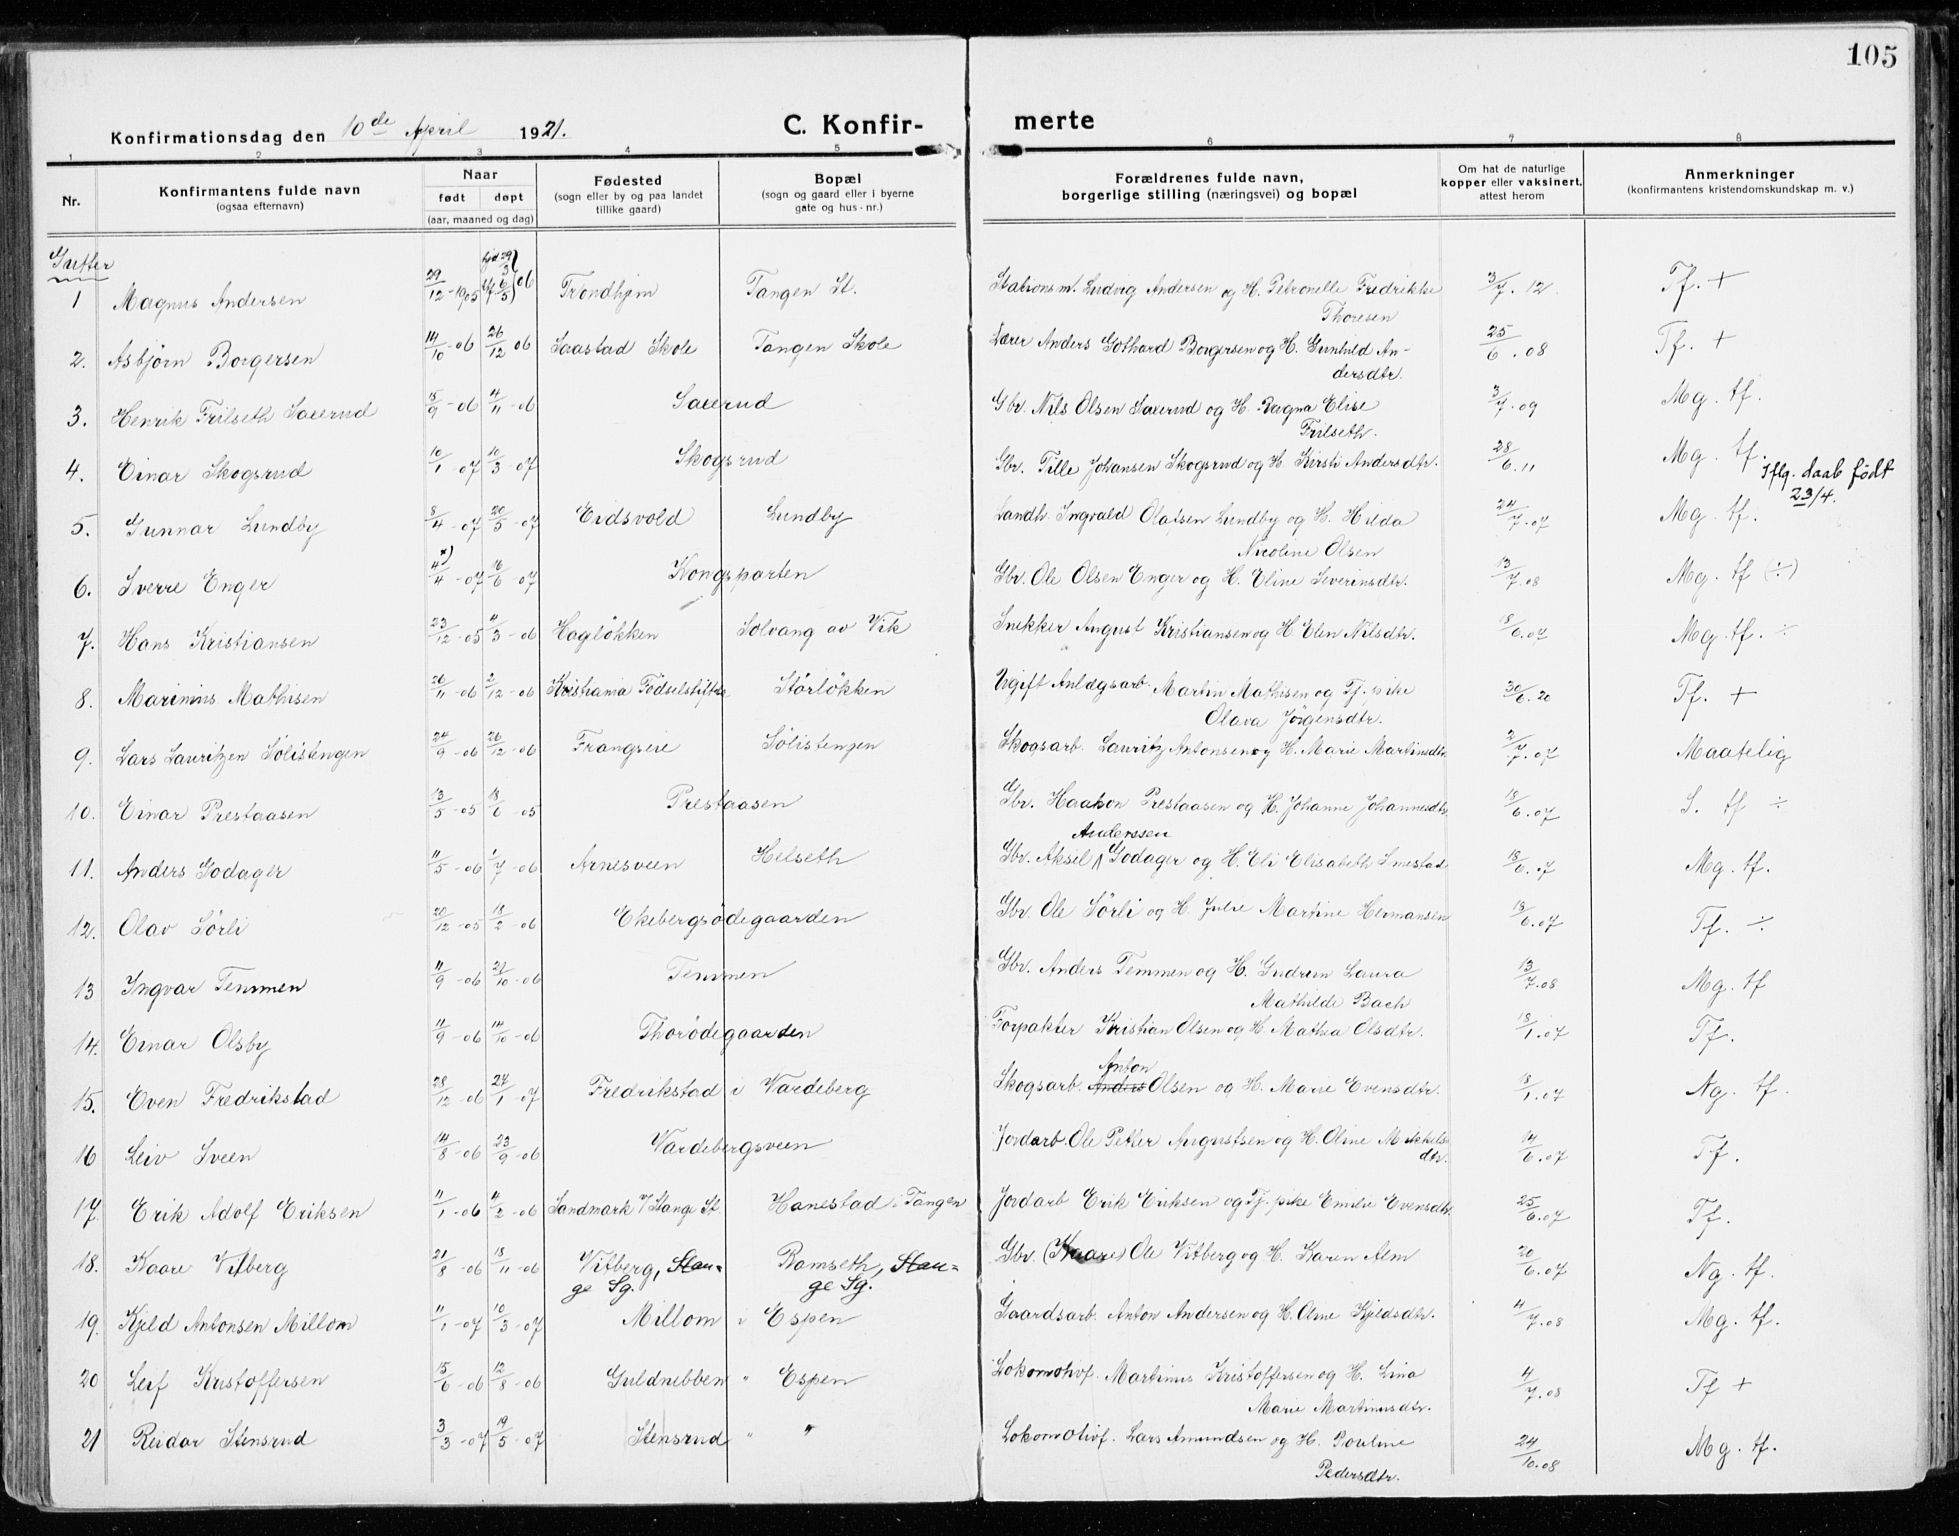 105
Konfirmationsdag den 10de April 1921.
C. Konfirmerte
1 2 3 4 5 6 7 8
Nr.
Konfirmantens fulde navn
(ogsaa efternavn)
Naar
født døpt
(aar, maaned og dag)
Fødested
(sogn eller by og paa landet
tillike gaard)
Bopæl
(sogn og gaard eller i byerne
gate og hus-nr.)
Forældrenes fulde navn,
borgerlige stilling (næringsvei) og bopæl
Om hat de naturlige
kopper eller vaksinert,
attest herom
Anmerkninger
(konfirmantens kristendomskundskap m. v.)
Gutter
1 Magnus Andersen 29/12-1905 6/5 06 Trondhjem Tangen St. Stationsm. Ludvig Andersen og H. Petronelle Fredrikke 3/7. 12. Tf. +
Thoresen
2. Asbjörn Borgersen 14/10-06 26/12 06 Saastad Skole Tangen Skole Lærer Anders Gothard Borgersen og H. Gunhild An- 25/6. 08 Tf. +
dersdtr.
3. Henrik Frilseth Saxerud 15/9-06 4/11-06 Saxerud Gbr. Nils Olsen Saxerud og H. Ragna Elise 3/7. 09 Mg. tf.
Frilseth.
4. Einar Skogsrud 10/1-07 10/3-07 Skogsrud Gbr. Tille Johansen Skogsrud og H. Kirsti Andersdtr. 28/6. 11 Mg. tf.
Iflg. daab født
23/4.
5. Gunnar Lundby 8/4-07 20/5-07 Eidsvold Lundby Landh. Ingvald Olafsen Lundby og H. Hilda 24/7. 07 Mg. tf.
Nicoline Olsen
6. Sverre Enger 4/4 x)-07 16/6-07 Kongsparten Gbr. Ole Olsen Enger og H. Eline Severinsdtr. 13/7. 08 Mg. tf (÷)
7. Hans Kristiansen 23/12-05 4/3-06 Hagløkken Solvang av Vik Snekker August Kristiansen og H Elen Nilsdtr. 18/6. 07 Mg. tf. ÷
8. Marinius Mathisen 26/11-06 2/12-06 Kristiania Födselstiftelse Störlökken Ugift Anlægsarb. Martin Mathisen og Tj. pike 30/6. 20 Tf. +
Olava Jörgensdtr.
9. Lars Lauritzen Sölistengen 24/9-06 26/12-06 Frangseie Sölistengen Skogsarb. Lauritz Antonsen og H. Marie Martinsdtr 2/7. 07 Maatelig
10. Einar Prestaasen 13/5-05 18/6-05 Prestaasen Gbr. Haakon Prestaasen og H. Johanne Johannesdtr. 18/6. 07 S. tf ÷
Anderssen
11. Anders Godager 11/5-06 1/7-06 Arnesveen Helseth Gbr. Aksel Godager og H. Eli Elisabeth Smestad 18/6. 07 Mg. tf.
12. Olav Sörli 20/12-05 18/2-06 Ekebergsödegaarden Gbr. Ole Sörli og H. Julie Martine Hermansen 18/6. 07 Tf. ÷
13 Ingvar Temmen 11/9-06 21/10-06 Temmen Gbr. Anders Temmen og H. Gudrun Laura 13/7. 08 Mg. tf
Mathilde Bach
14. Einar Olsby 11/9-06 14/10-06 Thorödegaarden Forpakter Kristian Olsen og H. Mathea Olsdtr. 18/1. 07 Tf.
Anton
15. Even Fredrikstad 28/12-06 27/1-07 Fredrikstad i Vardeberg Skogsarb. Anders Olsen og H. Marie Evensdtr. 18/1. 07 Ng. tf.
16 Leiv Sveen 14/8-06 23/9-06 Vardebergsveen Jordarb. Ole Petter Augustsen og H. Oline Mikkels- 14/6. 07 Tf.
dtr.
17. Erik Adolf Eriksen 11/1-06 4/2-06 Sandmark v/ Stange St. Hanestad i Tangen Jordarb Erik Eriksen og Tj. pike Emilie Evensdtr. 25/6. 07 Tf.
18. Kaare Vitberg 21/8-06 18/11-06 Vitberg, Stan-ge Sg. Romseth, Stan-ge Sg. Gbr. (Kaare) Ole Vitberg og H. Karen Alm 20/6. 07 Ng. tf.
19. Kjeld Antonsen Millom 11/1-07 10/3-07 Millom i Espen Gaardsarb. Anton Andersen og H. Oline Kjeldsdtr. 4/7. 08 Mg. tf.
20 Leif Kristoffersen 15/6-06 12/8-06 Guldnebben " Espen Lokomotivf. Martinus Kristoffersen og H. Lina 4/7. 08 Tf +
Marie Martinusdtr.
21 Reidar Stensrud 3/3-07 19/5-07 Stensrud " " Lokomotivf. Lars Amundsen og H. Pauline 24/10. 08 Mg. tf.
Pedersdtr.